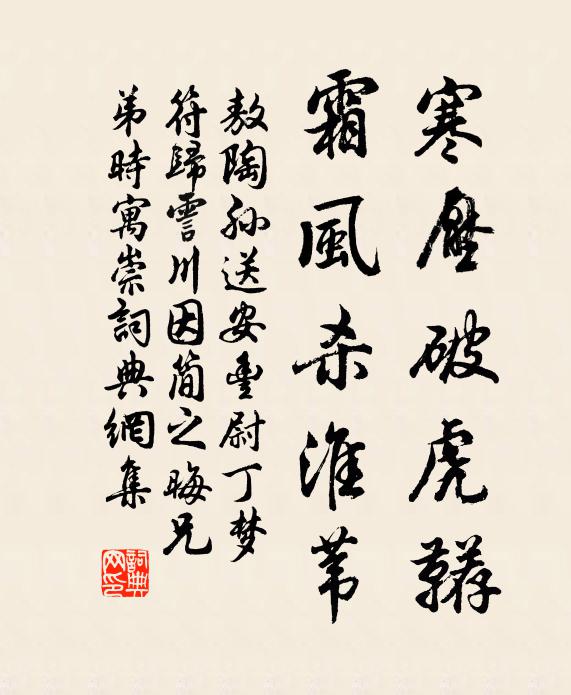 寒壓破虎韉
霜風杀淮苇
敖陶孙送安豊尉丁梦
符歸霅川因简之晦兄
弟時寓崇詞典網集
詞典网印